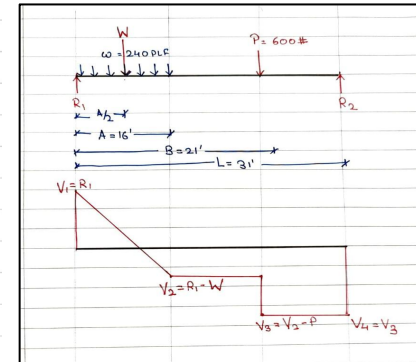 W
ω = 240 PLF
P = 600#
R1
R2
A/2
A = 16'
B = 21'
L = 31'
V1 = R1
V2 = R1 - W
V3 = V2 - P
V4 = V3